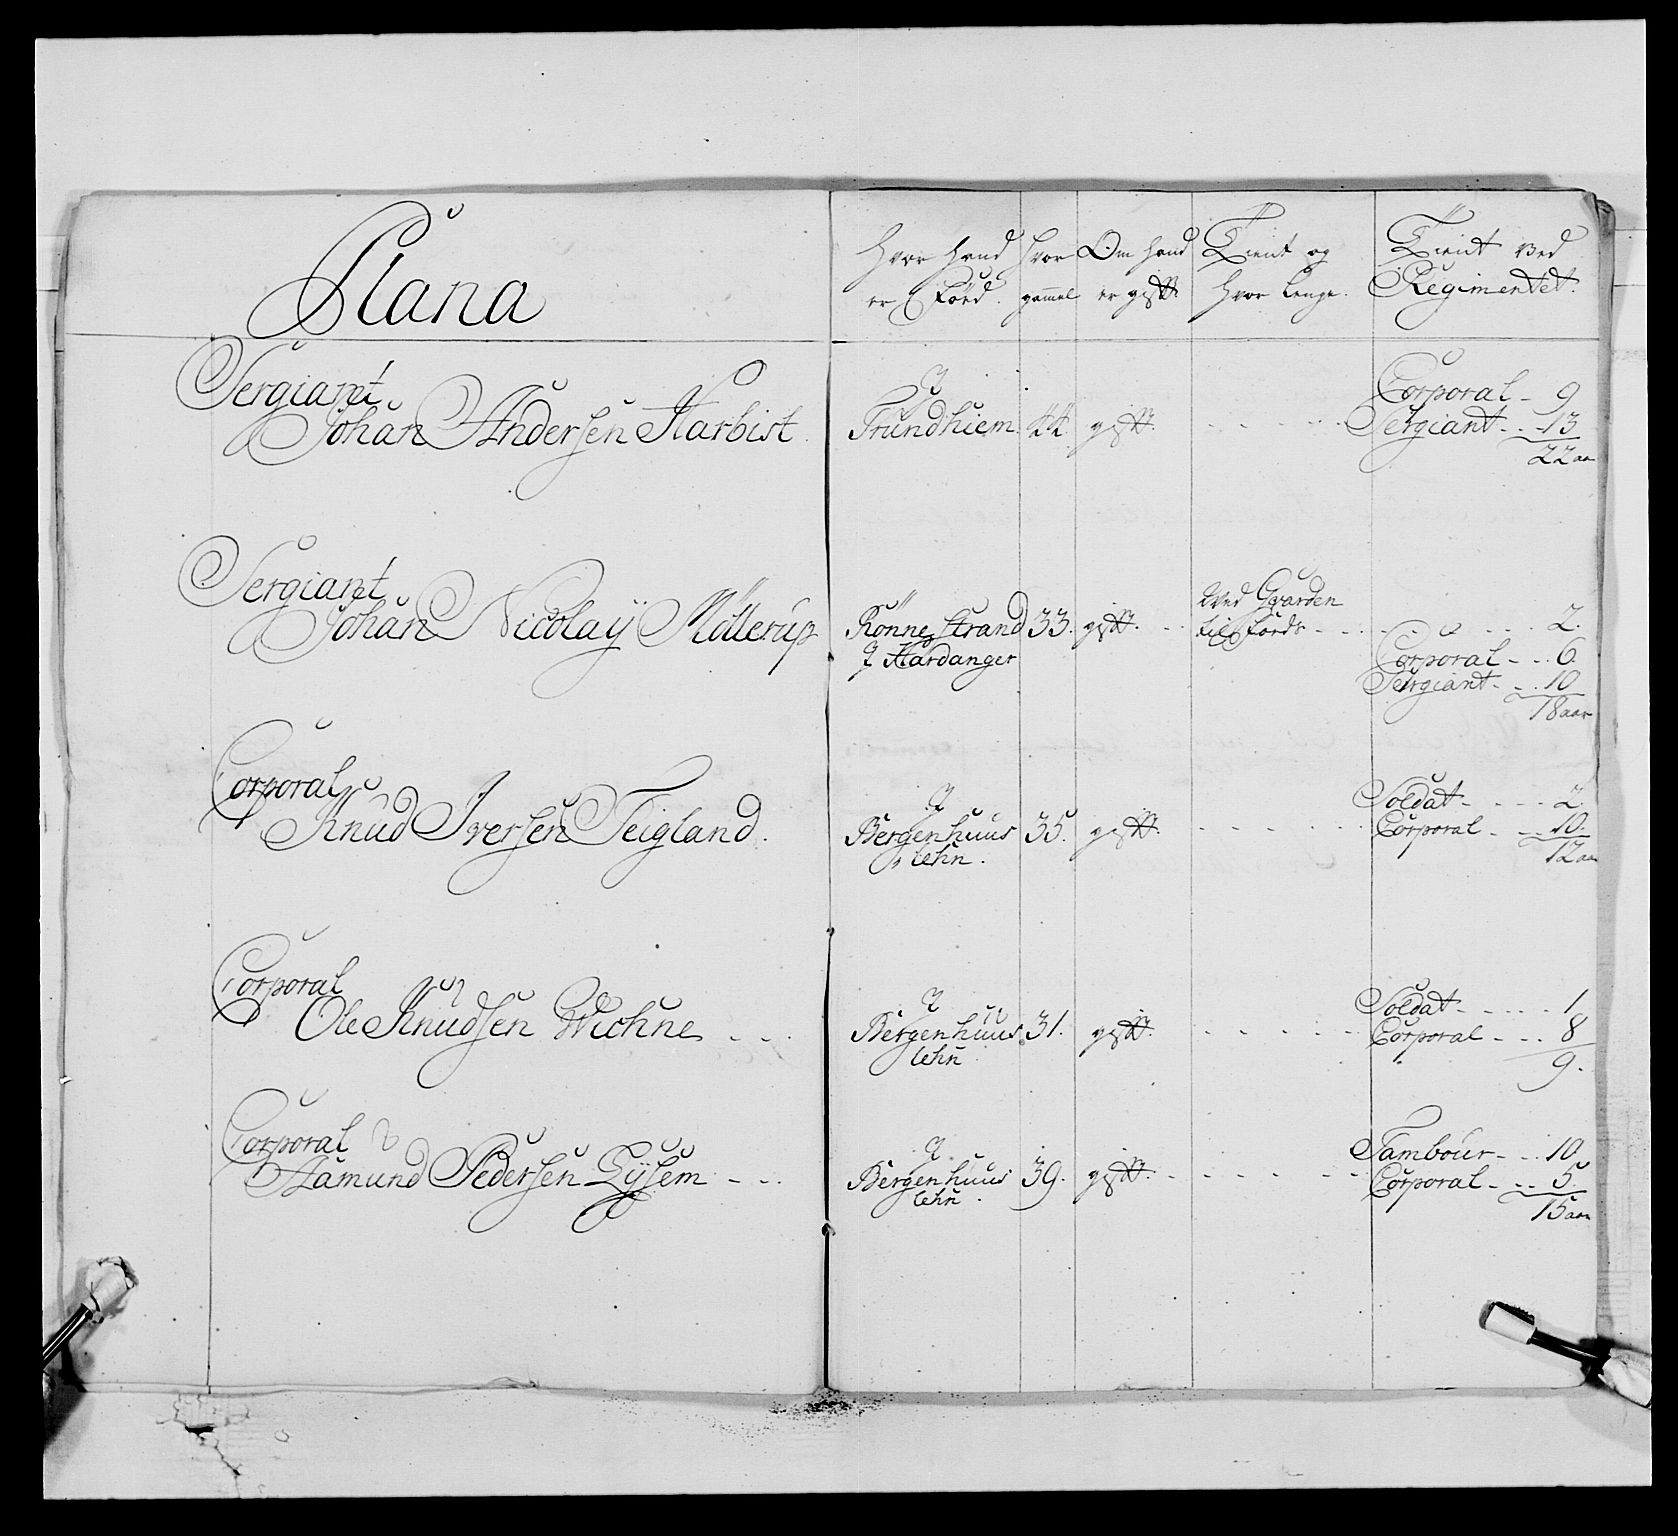 Nana
Hvor hand | Hvor | Om hand | Tient og | Tient ved
er Föed. | gamel | er gift | Hvor lenge. | Regimentet.
Sergiant
Johan Andersen Harbist | J Trundhiem | 44. | gift. | - - - - - | Corporal - 9
Sergiant - - 13
22 aar
Sergiant
Johan Nicolaÿ Möllerup | Rönne Strand | 33. | gift. | Ved Gvarden
J Hardanger | til Foeds - - - - - 2.
Corporal - - 6.
Sergiant - - 10
18 aar
Corporal
Knud Iversen Teigland. | J Bergenhuus | 35. | gift. | - - - - | Soldat - - - - 2.
lehn. | Corporal - - 10.
12 aar
Corporal
Ole Knudsen Wichne - - - | J Bergenhuus | 31. | gift. | - - - - | Soldat - - - - - 1
lehn | Corporal - - - 8
9.
Corporal
Aamund Pedersen Lÿsem - - - | J Bergenhuus | 39. | gift. | - - - - | Tambour - - 10
lehn. | Corporal - - - 5.
15 aar